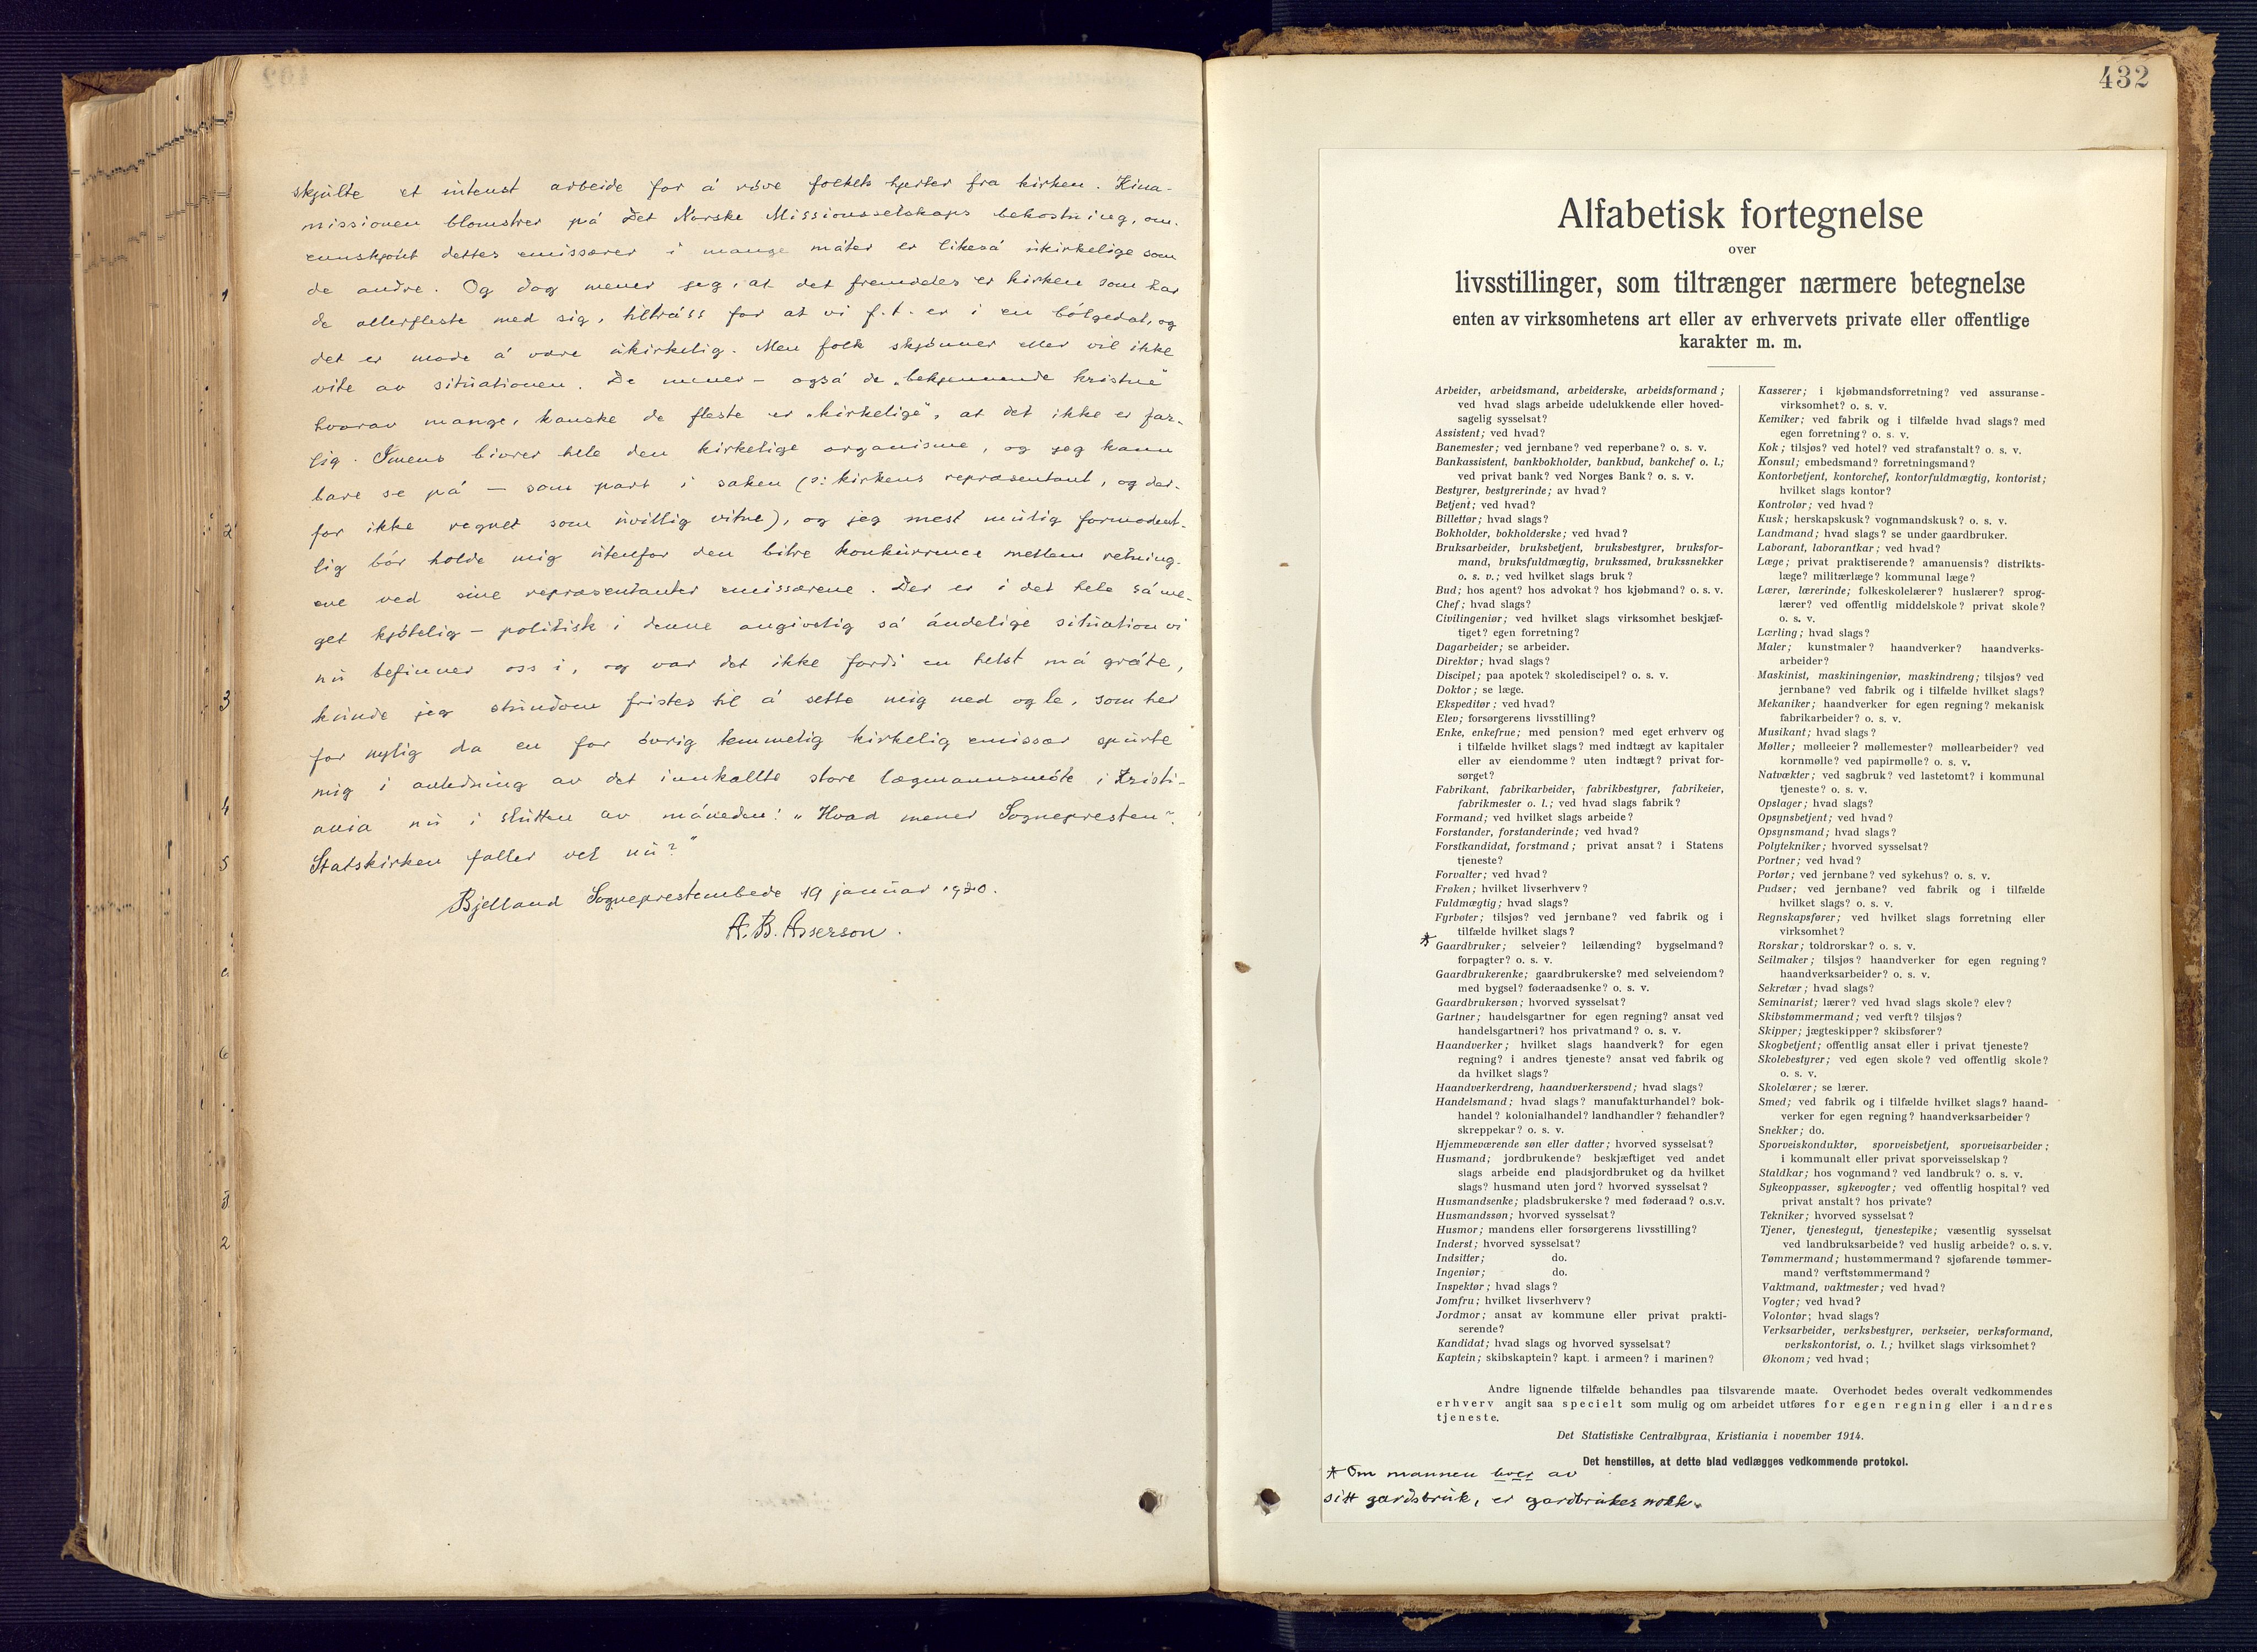 skjulte et intenst arbeide for å røve folkets hjerter fra kirken. Kina-
missionen blomstrer på Det Norske Missionsselskaps bekostning, om-
ennskjønt dettes emissærer i mange måter er likeså ukirkelige som
de andre. Og dog mener jeg, at det fremdeles er kirken som har
de allerfleste med sig, tiltråss for at vi f.t. er i en bølgedal, og
det er mode å være ukirkelig. Men folk skjønner eller vil ikke
vite av situationen. De mener – også de „bekjennende kristne"
hvorav mange, kanske de fleste er „kirkelige", at det ikke er far-
lig. Imens bivrer hele den kirkelige organisme, og jeg kann
bare se på – som part i saken (ɔ: kirkens repræsentant, og der-
for ikke regnet som uvillig vitne), og jeg mest mulig formodent-
lig bør holde mig utenfor den bitre konkurrence mellem retning-
ene ved sine repræsentanter emissærene. Der er i det hele så me-
get kjøtelig – politisk i denne angivelig så åndelige situation vi
nu befinner oss i, og var det ikke fordi en helst må gråte,
kunde jeg stundom fristes til å sette mig ned og le, som her
for nylig da en for øvrig temmelig kirkelig emissær spurte
mig i anledning av det innkallte store lægmannsmøte i Kristi-
ania nu i slutten av måneden: „Hvad mener Sognepresten?
Statskirken faller vel nu?"
Bjelland Sogneprestembede 19 januar 1920.
A. B. Asserson.
432
Alfabetisk fortegnelse
over
livsstillinger, som tiltrænger nærmere betegnelse
enten av virksomhetens art eller av erhvervets private eller offentlige
karakter m. m.
Arbeider, arbeidsmand, arbeiderske, arbeidsformand;
ved hvad slags arbeide udelukkende eller hoved-
sagelig sysselsat?
Assistent; ved hvad?
Banemester; ved jernbane? ved reperbane? o. s. v.
Bankassistent, bankbokholder, bankbud, bankchef o. l.;
ved privat bank? ved Norges Bank? o. s. v.
Bestyrer, bestyrerinde; av hvad?
Betjent; ved hvad?
Billettør; hvad slags?
Bokholder, bokholderske; ved hvad?
Bruksarbeider, bruksbetjent, bruksbestyrer, bruksfor-
mand, bruksfuldmægtig, brukssmed, brukssnekker
o. s. v.; ved hvilket slags bruk?
Bud; hos agent? hos advokat? hos kjøbmand? o. s. v.
Chef; hvad slags?
Civilingeniør; ved hvilket slags virksomhet beskjæf-
tiget? egen forretning?
Dagarbeider; se arbeider.
Direktør; hvad slags?
Discipel; paa apotek? skolediscipel? o. s. v.
Doktor; se læge.
Ekspeditør; ved hvad?
Elev; forsørgerens livsstilling?
Enke, enkefrue; med pension? med eget erhverv og
i tilfælde hvilket slags? med indtægt av kapitaler
eller av eiendomme? uten indtægt? privat for-
sørget?
Fabrikant, fabrikarbeider, fabrikbestyrer, fabrikeier,
fabrikmester o. l.; ved hvad slags fabrik?
Formand; ved hvilket slags arbeide?
Forstander, forstanderinde; ved hvad?
Forstkandidat, forstmand; privat ansat? i Statens
tjeneste?
Forvalter; ved hvad?
Frøken; hvilket livserhverv?
Fuldmægtig; hvad slags?
Fyrbøter; tilsjøs? ved jernbane? ved fabrik og i
tilfælde hvilket slags?
* Gaardbruker; selveier? leilænding? bygselmand?
forpagter? o. s. v.
Gaardbrukerenke; gaardbrukerske? med selveiendom?
med bygsel? føderaadsenke? o. s. v.
Gaardbrukersøn; hvorved sysselsat?
Gartner; handelsgartner for egen regning? ansat ved
handelsgartneri? hos privatmand? o. s. v.
Haandverker; hvilket slags haandverk? for egen
regning? i andres tjeneste? ansat ved fabrik og
da hvilket slags?
Haandverkerdreng, haandverkersvend; hvad slags?
Handelsmand; hvad slags? manufakturhandel? bok-
handel? kolonialhandel? landhandler? fæhandler?
skreppekar? o. s. v.
Hjemmeværende søn eller datter; hvorved sysselsat?
Husmand; jordbrukende? beskjæftiget ved andet
slags arbeide end pladsjordbruket og da hvilket
slags? husmand uten jord? hvorved sysselsat?
Husmandsenke; pladsbrukerske? med føderaad? o.s.v.
Husmandssøn; hvorved sysselsat?
Husmor; mandens eller forsørgerens livsstilling?
Inderst; hvorved sysselsat?
Indsitter; do.
Ingeniør; do.
Inspektør; hvad slags?
Jomfru; hvilket livserhverv?
Jordmor; ansat av kommune eller privat prakti-
serende?
Kandidat; hvad slags og hvorved sysselsat?
Kaptein; skibskaptein? kapt. i armeen? i marinen?
Kasserer; i kjøbmandsforretning? ved assuranse-
virksomhet? o. s. v.
Kemiker; ved fabrik og i tilfælde hvad slags? med
egen forretning? o. s. v.
Kok; tilsjøs? ved hotel? ved strafanstalt? o. s. v.
Konsul; embedsmand? forretningsmand?
Kontorbetjent, kontorchef, kontorfuldmægtig, kontorist;
hvilket slags kontor?
Kontrolør; ved hvad?
Kusk; herskapskusk? vognmandskusk? o. s. v.
Landmand; hvad slags? se under gaardbruker.
Laborant, laborantkar; ved hvad?
Læge; privat praktiserende? amanuensis? distrikts-
læge? militærlæge? kommunal læge?
Lærer, lærerinde; folkeskolelærer? huslærer? sprog-
lærer? ved offentlig middelskole? privat skole?
o. s. v.
Lærling; hvad slags?
Maler; kunstmaler? haandverker? haandverks-
arbeider?
Maskinist, maskiningeniør, maskindreng; tilsjøs? ved
jernbane? ved fabrik og i tilfælde hvilket slags?
Mekaniker; haandverker for egen regning? mekanisk
fabrikarbeider? o. s. v.
Musikant; hvad slags?
Møller; mølleeier? møllemester? møllearbeider? ved
kornmølle? ved papirmølle? o. s. v.
Natvækter; ved sagbruk? ved lastetomt? i kommunal
tjeneste? o. s. v.
Opslager; hvad slags?
Opsynsbetjent; ved hvad?
Opsynsmand; hvad slags?
Polytekniker; hvorved sysselsat?
Portner; ved hvad?
Portør; ved jernbane? ved sykehus? o. s. v.
Pudser; ved jernbane? ved fabrik og i tilfælde
hvilket slags? o. s. v.
Regnskapsfører; ved hvilket slags forretning eller
virksomhet?
Rorskar; toldrorskar? o. s. v.
Seilmaker; tilsjøs? haandverker for egen regning?
haandverksarbeider? o. s. v.
Sekretær; hvad slags?
Seminarist; lærer? ved hvad slags skole? elev?
Skibstømmermand; ved verft? tilsjøs?
Skipper; jægteskipper? skibsfører?
Skogbetjent; offentlig ansat eller i privat tjeneste?
Skolebestyrer; ved egen skole? ved offentlig skole?
o. s. v.
Skolelærer; se lærer.
Smed; ved fabrik og i tilfælde hvilket slags? haand-
verker for egen regning? haandverksarbeider?
Snekker; do.
Sporveiskonduktør, sporveisbetjent, sporveisarbeider;
i kommunalt eller privat sporveisselskap?
Staldkar; hos vognmand? ved landbruk? o. s. v.
Sykeoppasser, sykevogter; ved offentlig hospital? ved
privat anstalt? hos private?
Tekniker; hvorved sysselsat?
Tjener, tjenestegut, tjenestepike; væsentlig sysselsat
ved landbruksarbeide? ved huslig arbeide? o. s. v.
Tømmermand; hustømmermand? sjøfarende tømmer-
mand? verftstømmermand?
Vaktmand, vaktmester; ved hvad?
Vogter; ved hvad?
Volontør; hvad slags?
Verksarbeider, verksbestyrer, verkseier, verksformand,
verkskontorist, o. l.; hvilket slags virksomhet?
Økonom; ved hvad;
Andre lignende tilfælde behandles paa tilsvarende maate. Overhodet bedes overalt vedkommendes
erhverv angit saa specielt som mulig og om arbeidet utføres for egen regning eller i andres
tjeneste.
Det Statistiske Centralbyraa, Kristiania i november 1914.
Det henstilles, at dette blad vedlægges vedkommende protokol.
* Om mannen lever av
sitt gardsbruk, er gardbruker nokk.